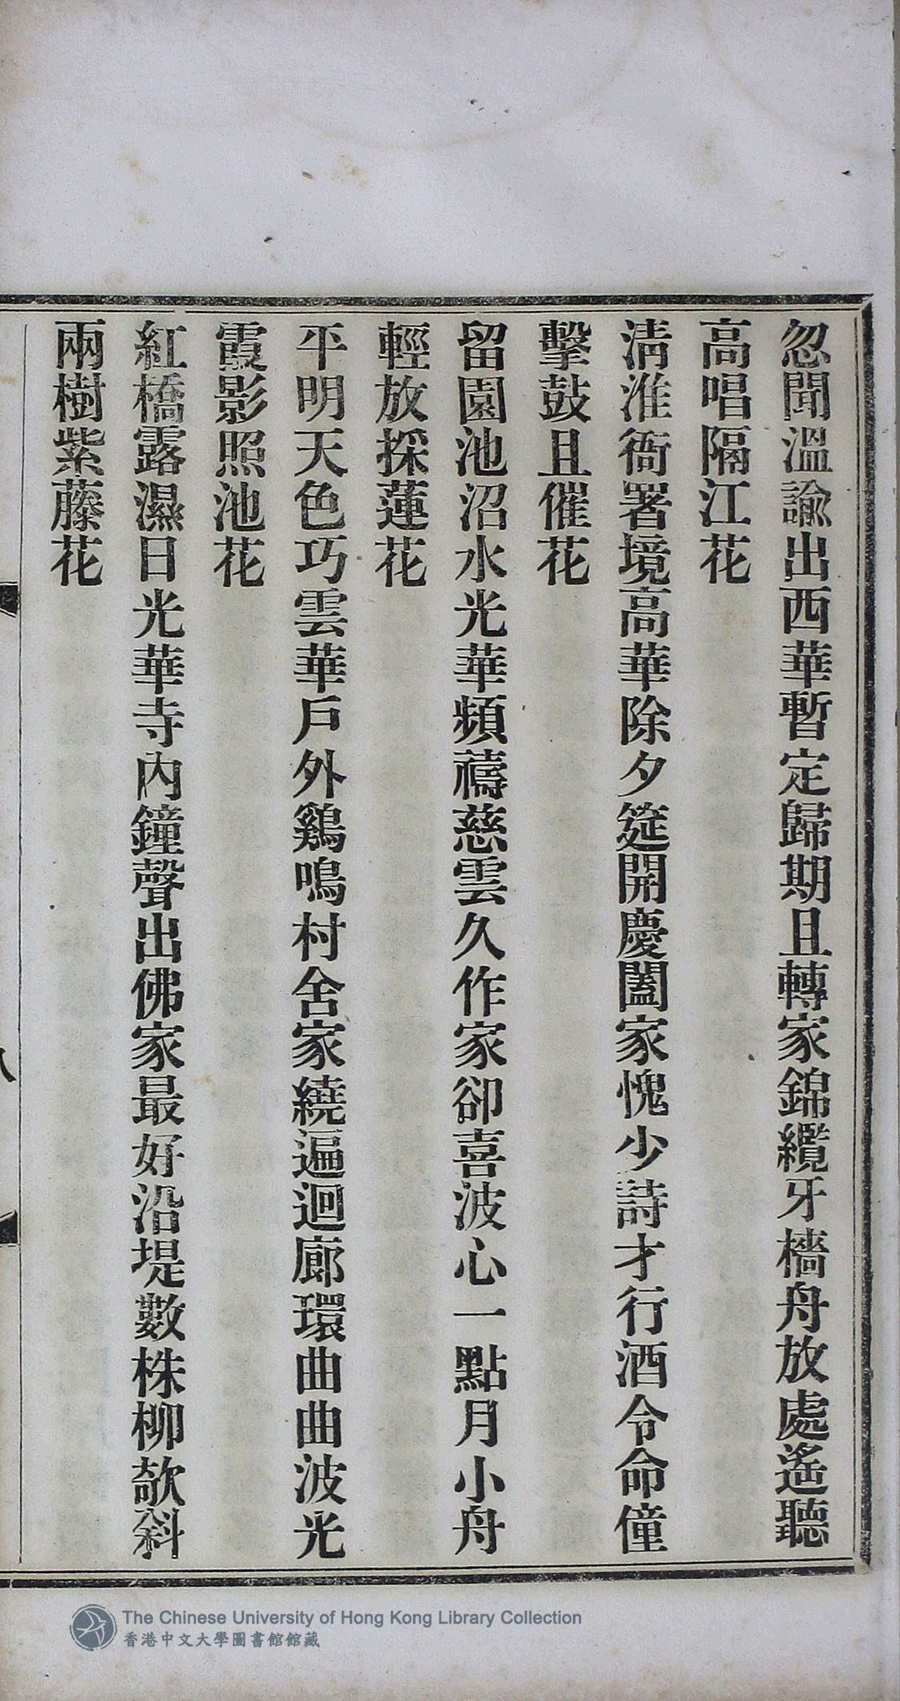 忽聞溫諭出西華暫定歸期且轉家錦纜牙檣舟放處遙聽
高唱隔江花
清淮衙署境高華除夕筵開慶闔家愧少詩才行酒令命僮
擊鼓且催花
留園池沼水光華頻禱慈雲久作家卻喜波心一點月小舟
輕放採蓮花
平明天色巧雲華戶外鷄鳴村舍家繞遍迴廊環曲曲波光
霞影照池花
紅橋露濕日光華寺內鐘聲出佛家最好沿堤數株柳欹斜
兩樹紫藤花
八
The Chinese University of Hong Kong Library Collection
香港中文大學圖書館館藏